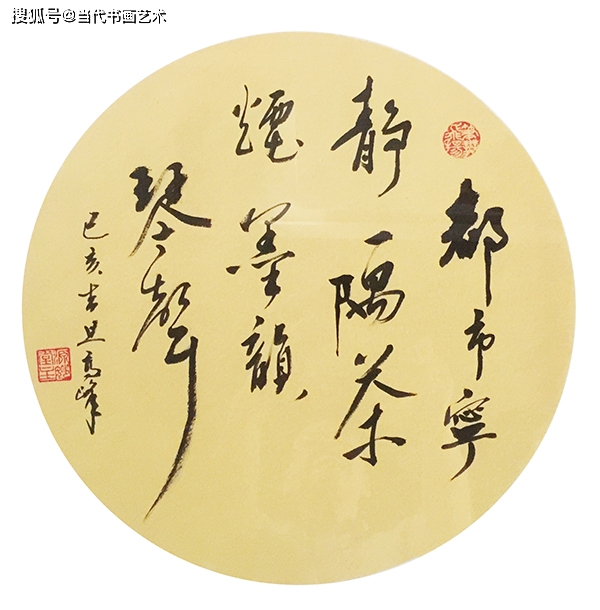 搜狐号@当代书画艺术
都市寧
静一隅茶
煙墨韻
琴聲
己亥吉旦高峰